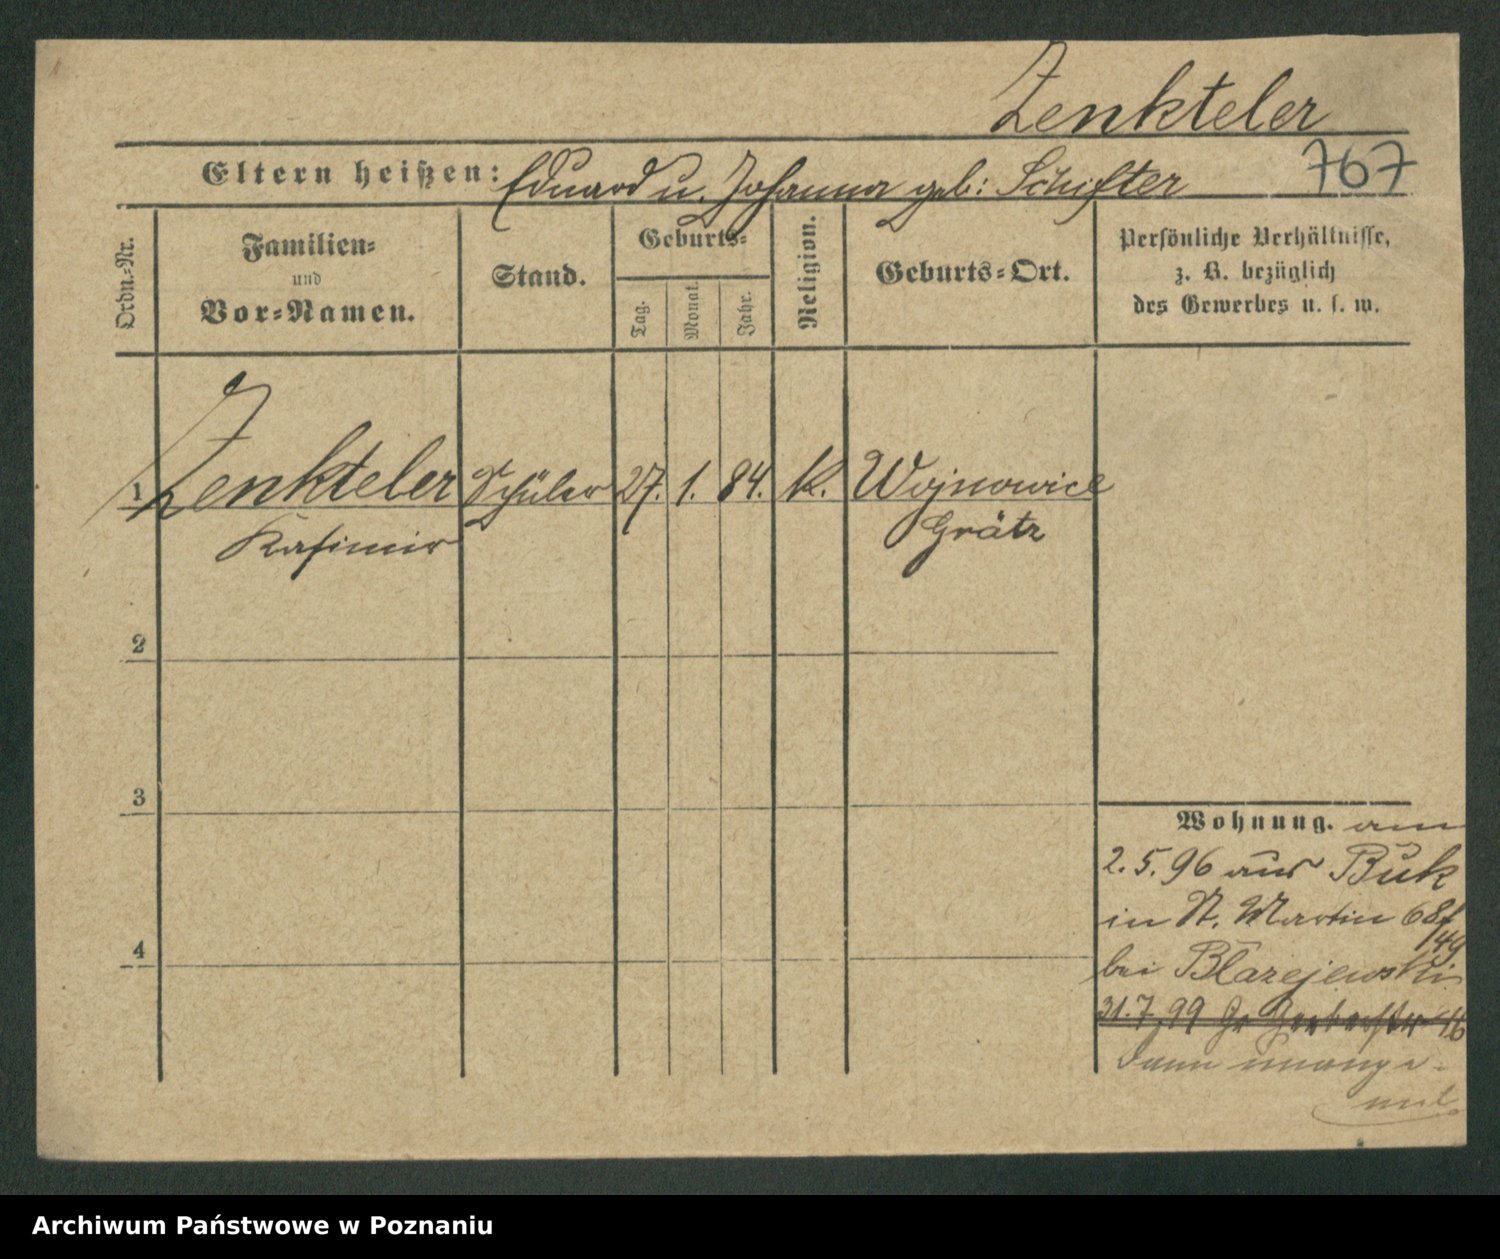 Zenkteler
Eltern heißen: Eduard u. Johanna geb: Schifter 767
Ordn.-Nr.
Familien-
und
Vor-Namen.
Stand.
Geburts-
Tag.
Monat.
Jahr.
Religion.
Geburts-Ort.
Persönliche Verhältnisse,
z. B. bezüglich
des Gewerbes u. s. w.
1 Zenkteler Schüler 27. 1. 84. K. Wojnowice
Kasimir Grätz
2
3
4
Wohnung. am
2. 5. 96 aus Buk
in St. Martin 68
bei Blazejewski
31.7.99 Gr Gerberstr 16
dann
Archiwum Państwowe w Poznaniu